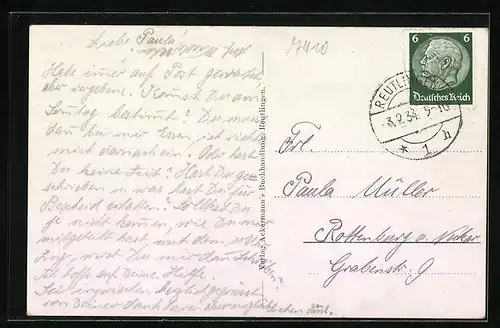 Liebe Paula!
Habe immer auf Post gewartet
aber vergebens. Kommst Du am
Sonntag bestimmt? Du
bei mir Essen, ich richte
mich darnach ein! Oder hast
Du keine Zeit? Hast Du
schrieben u. was hast Du für
Bescheid erhalten? Solltest Du
ja nicht kommen, wie Du mir
mitgeteilt hast, mit dem
Zug, wirst Du mir dann schreiben?
Ich hoffe auf Deine Hilfe.
Sei inzwischen herzlich gegrüsst
von Deiner
7410
Verlag Ackermann's Buchhandlung, Reutlingen.
6 6
Deutsches Reich
REUTLINGEN
3.2.34. 9-10
* 1 h
Frl.
Paula Müller
Rottenburg a. Neckar
Grabenstr. 9